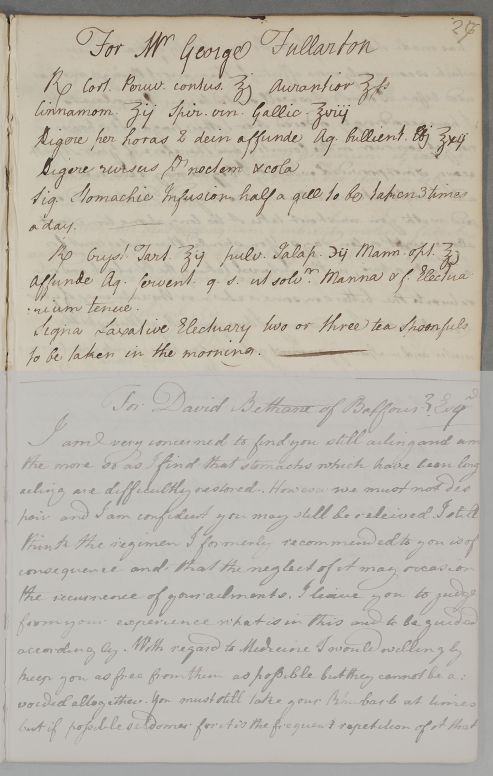 27
For Mr George Fullarton
℞ Cort. Peruv. contus. ℥j Aurantior ℥ſs
Cinnamom. ʒij Spir. vin. Gallic. ℥viij
Digere per horas 2 dein affunde Aq. bullient. ℥xij
Digere rursus pr noctem & cola
Sig. Stomachic Infusion half a gill to be taken 3 times
a day.
℞ Crys. Tart. ʒij pulv. Jalap. ℈ij Mann. opt. ℥j
affunde Aq. fervent. q. s. ut solvr. Manna & f. Electua
:rium tenue.
Signa Laxative Electuary two or three tea spoonfuls
to be taken in the morning.
For David Bethune of Balfour Esqr
I am very concerned to find you still ailing and am
the more so as I find that stomachs which have been long
ailing are difficultly restored. However we must not des
pair and I am confident you may still be relieved. I still
think the regimen I formerly recommended to you is of
consequence and that the neglect of it may occasion
the recurrence of your ailments. I leave you to judge
from your experience what is in this and to be guided
accordingly. With regard to Medicine I would willingly
keep you as free from them as poſsible but they cannot be a:
voided altogether. You must still take your Rhubarb at times
but if poſsible seldomer for it is the frequent repetition of it that